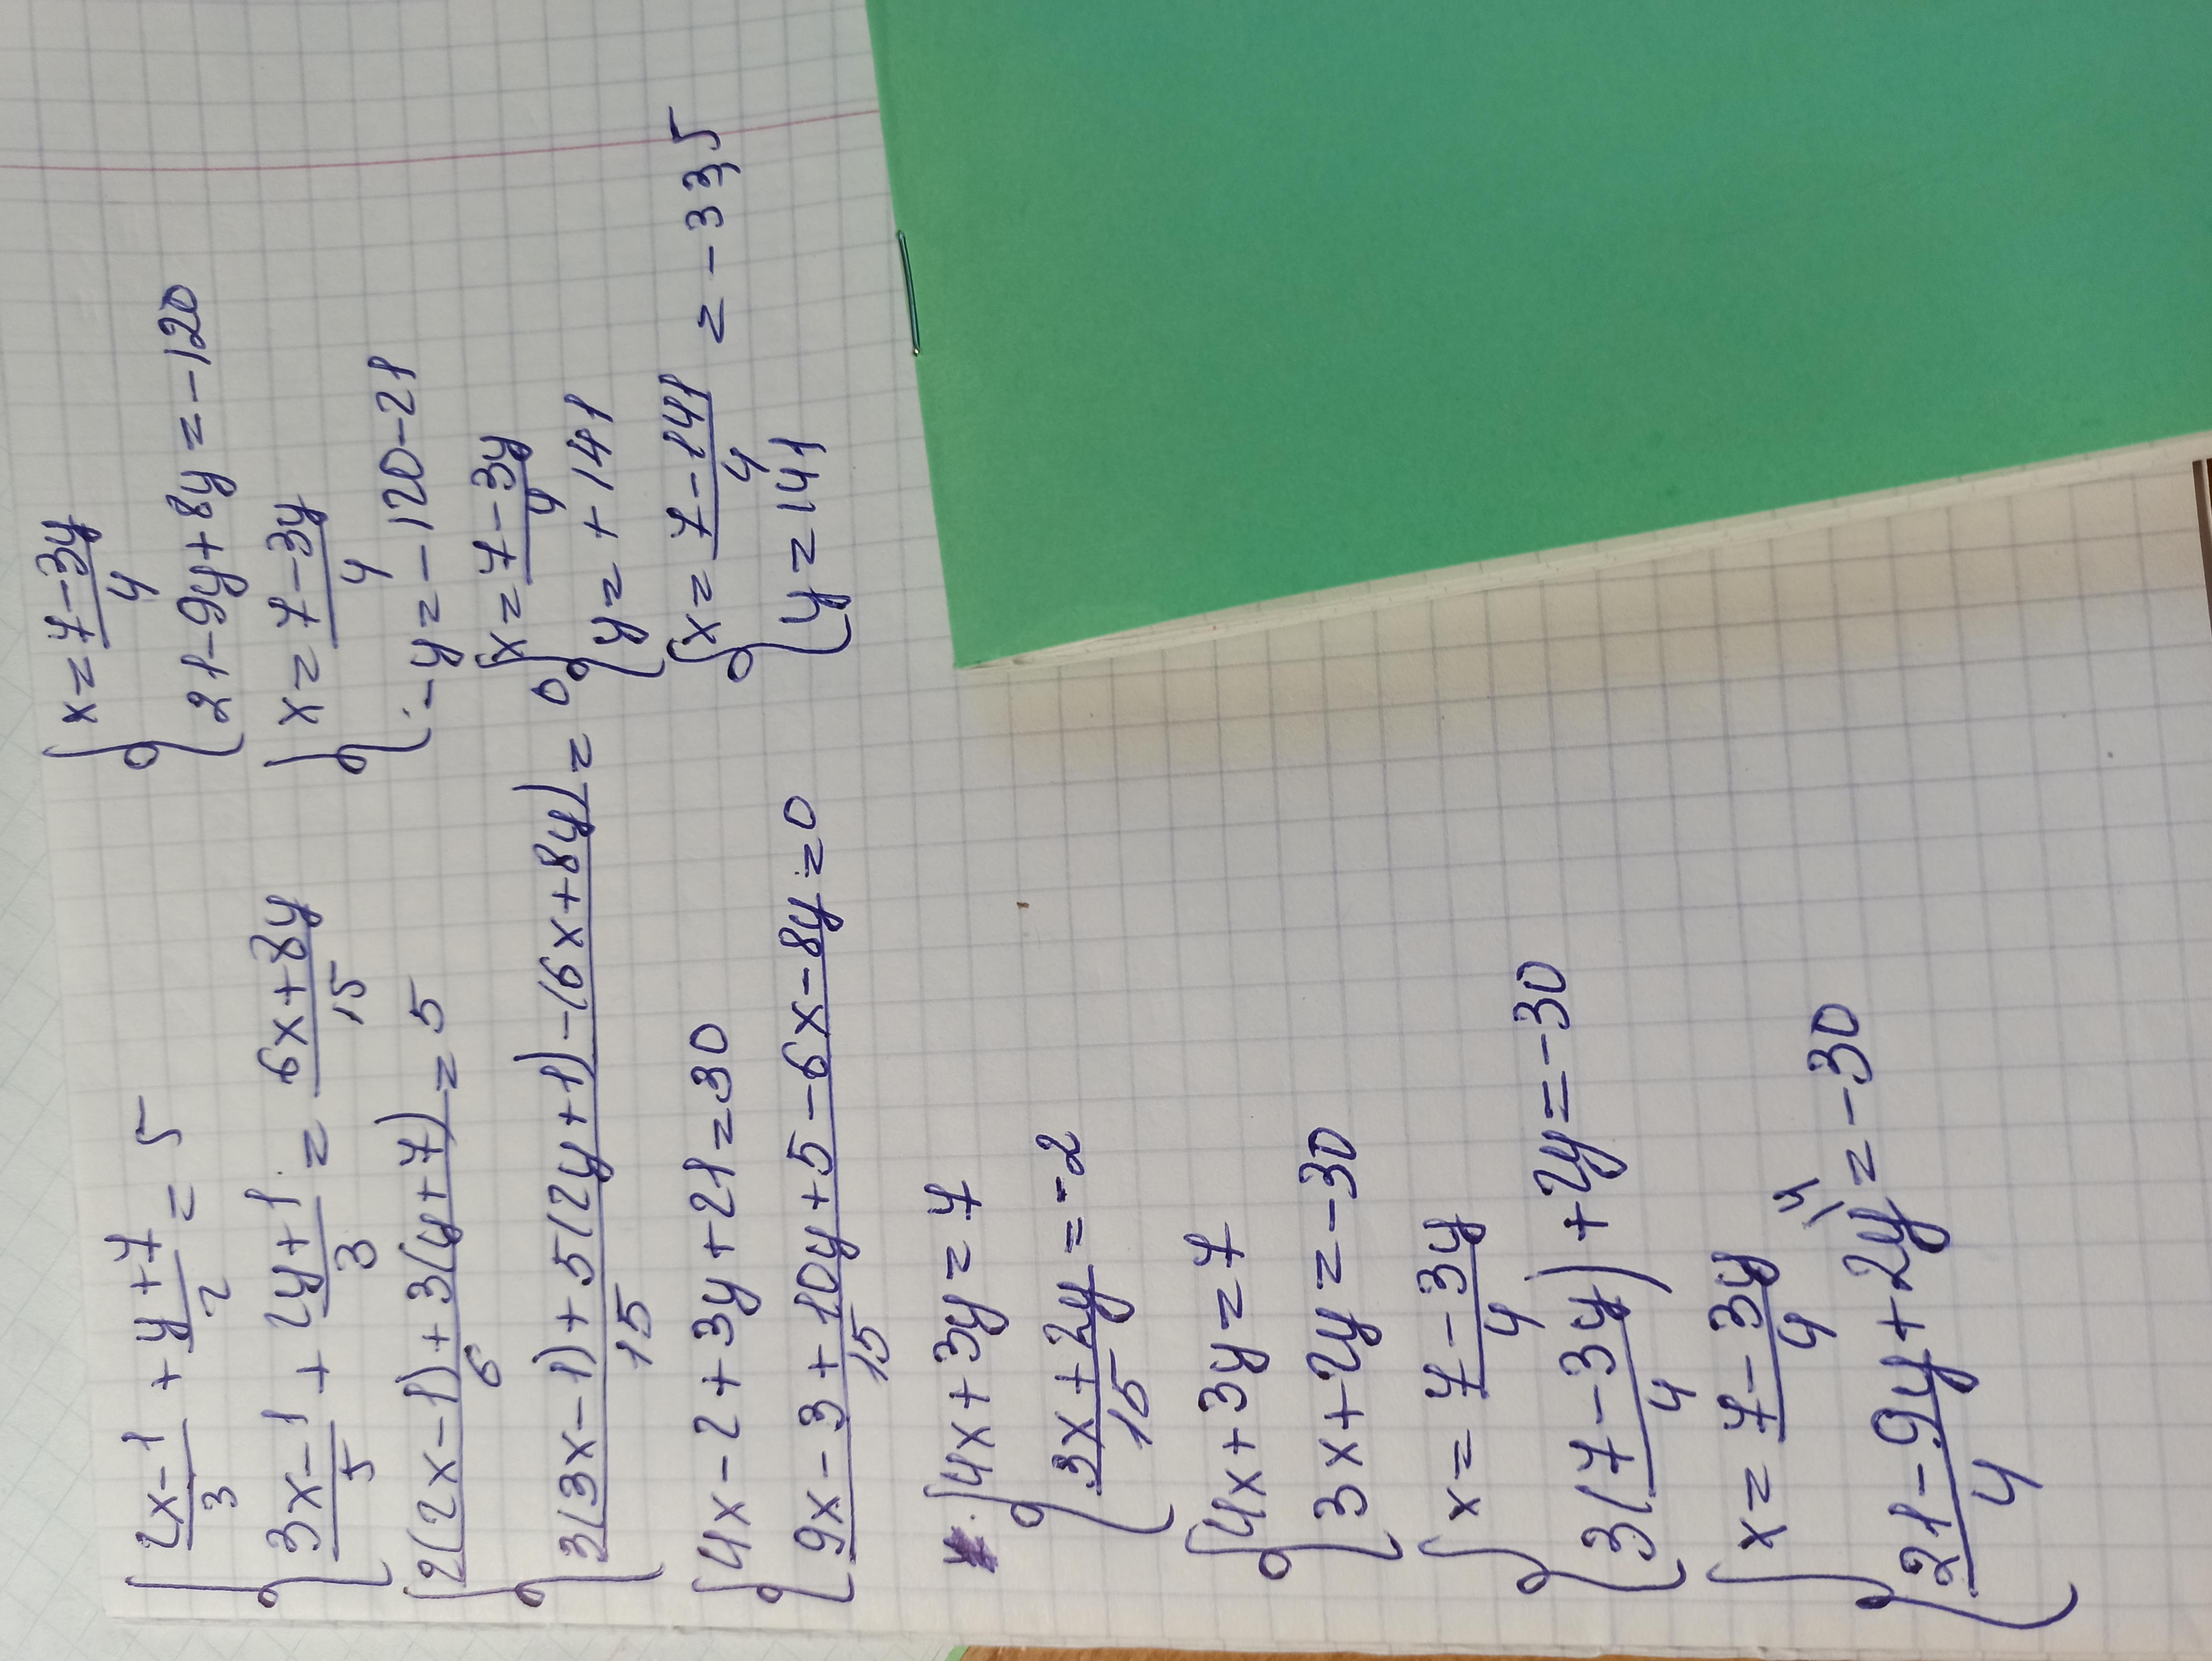 { (2x-1)/3 + (y+7)/2 = 5
(3x-1)/5 + (2y+1)/3 = (6x+8y)/15
{ (2(2x-1)+3(y+7))/6 = 5
(3(3x-1)+5(2y+1)-(6x+8y))/15 = 0
{ 4x-2+3y+21=30
(9x-3+10y+5-6x-8y)/15 = 0
{ 4x+3y=7
(3x+2y)/15 = -2
{ 4x+3y=7
3x+2y=-30
{ x=(7-3y)/4
3((7-3y)/4)+2y=-30
{ x=(7-3y)/4
(21-9y)/4+2y\4=-30
{ x=(7-3y)/4
21-9y+8y=-120
{ x=(7-3y)/4
-y=-120-21
{ x=(7-3y)/4
y=+141
{ x=(7-141)/4 = -33,5
y=141